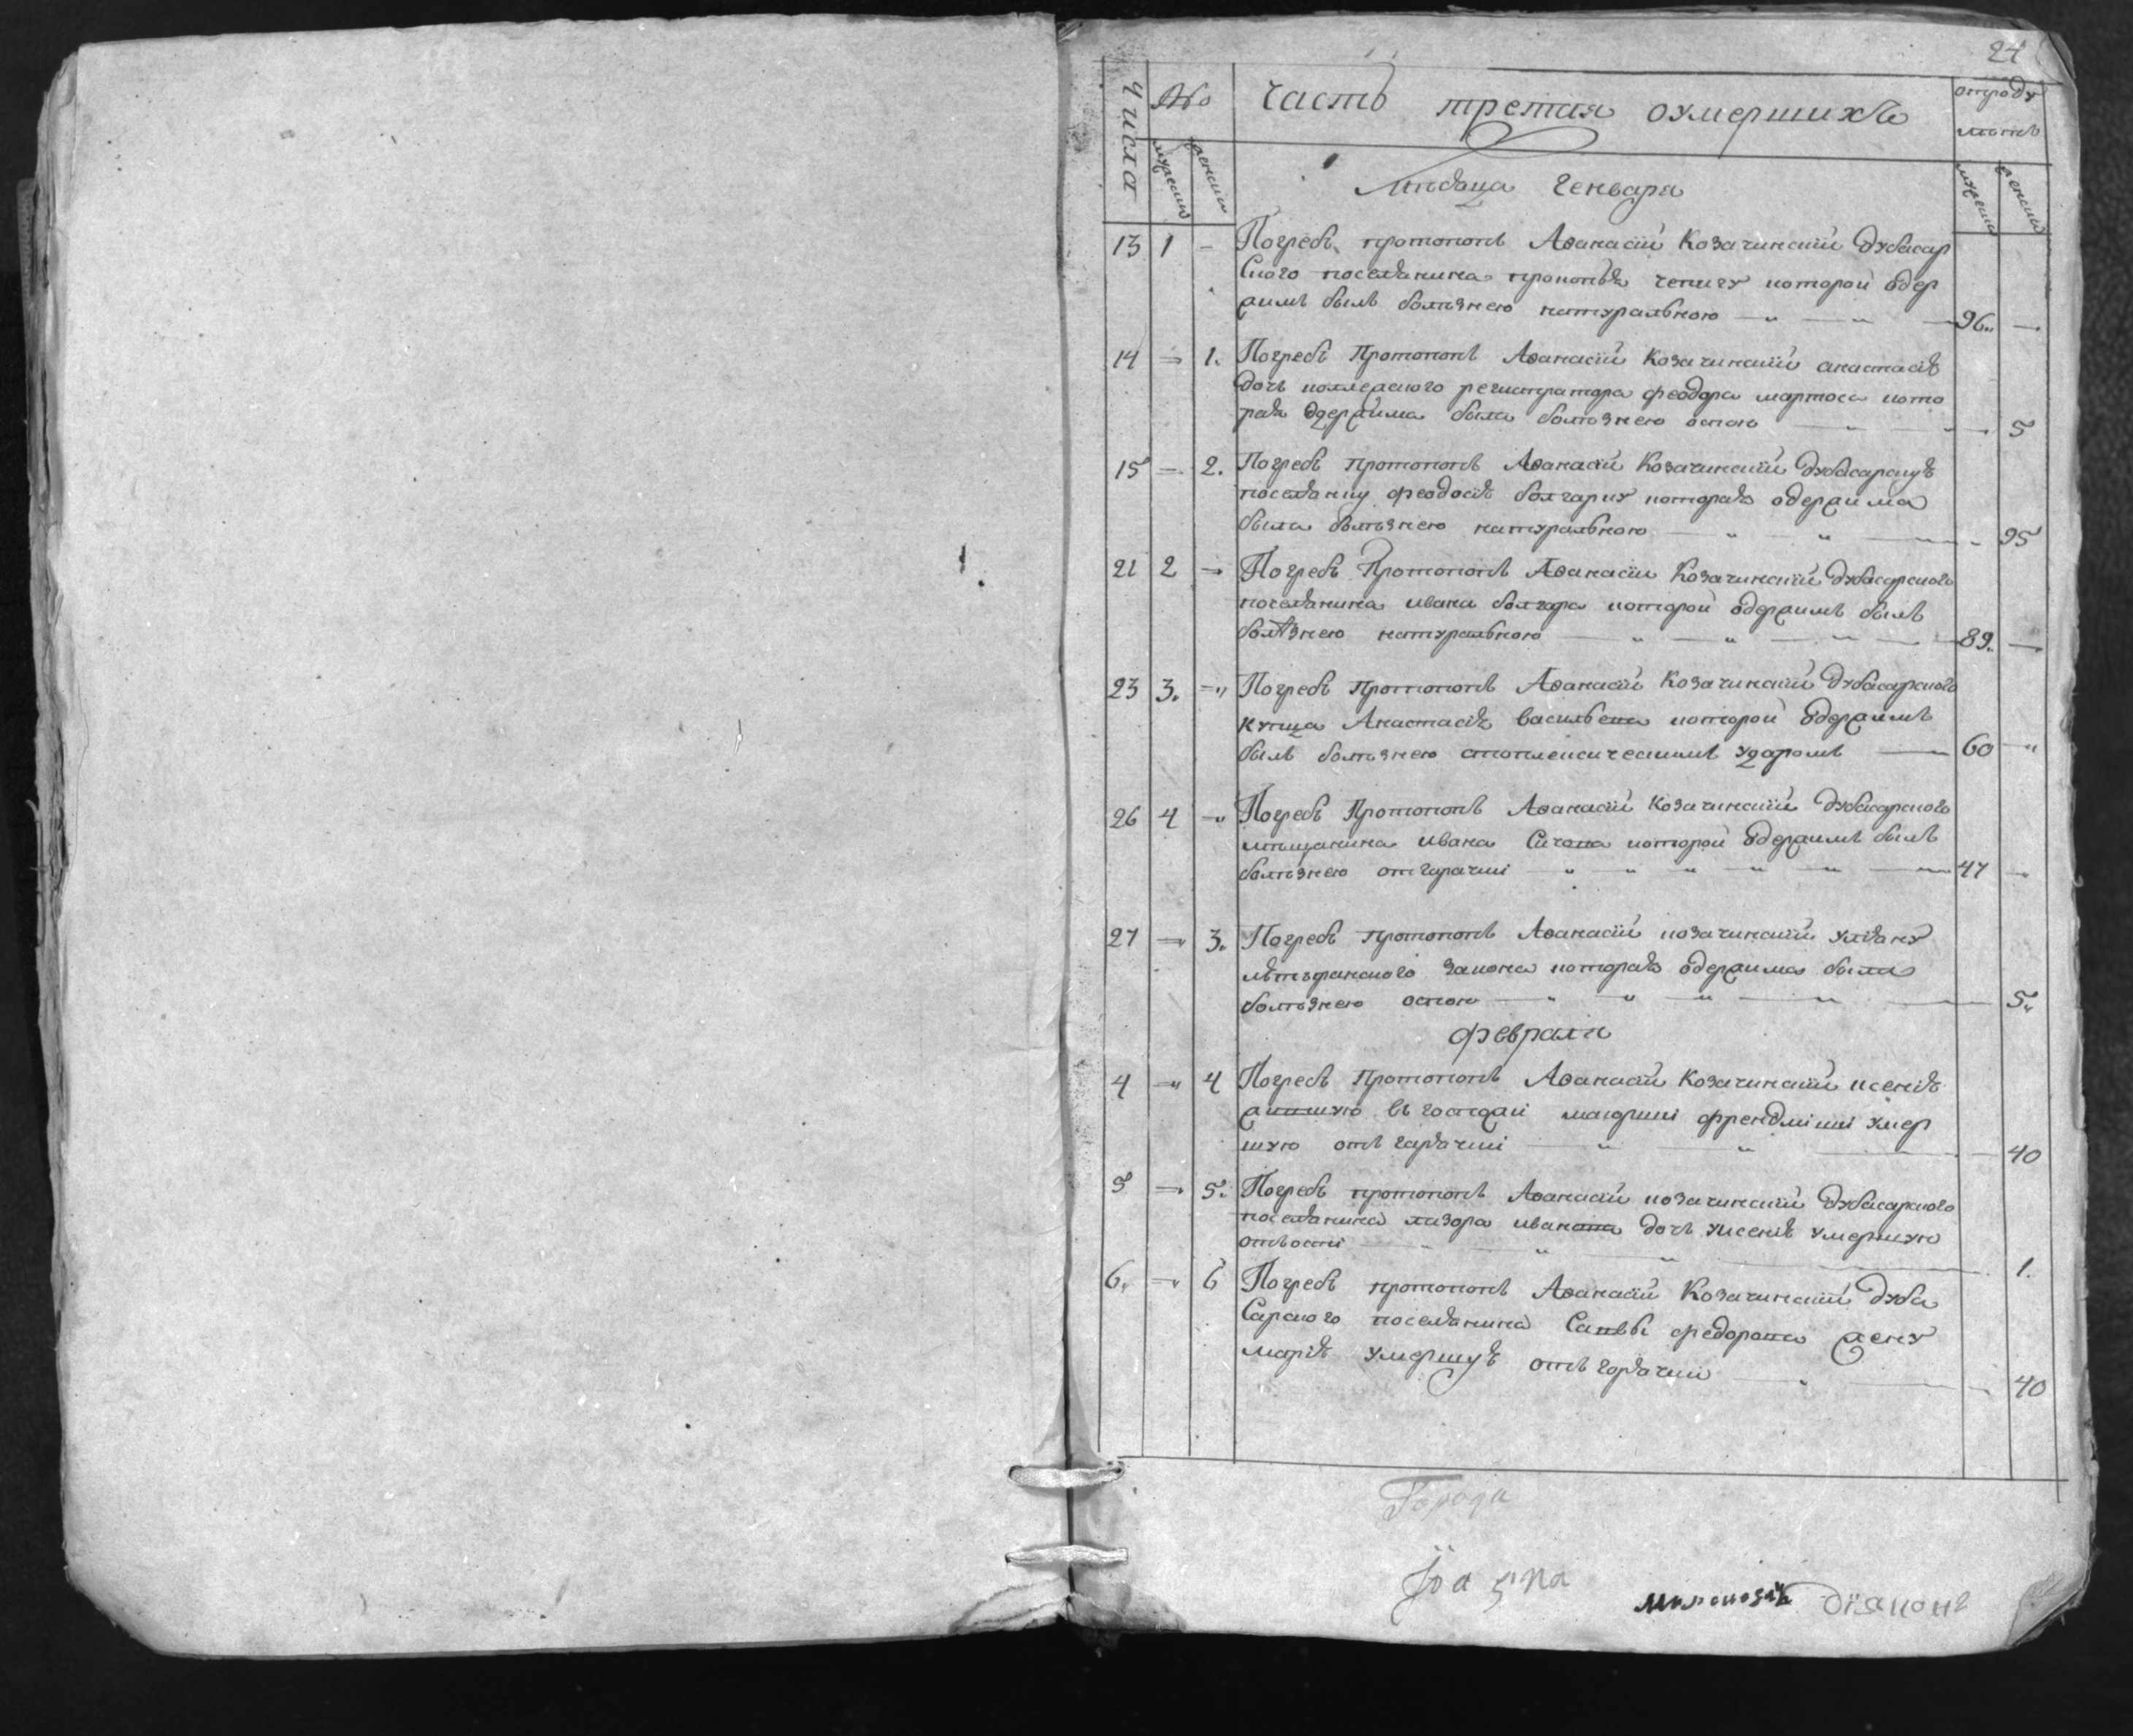 24
Числа № Часть третая оумершихъ отроду
лѣтъ
мужеска женска мужеска женска
Мѣсяца Генваря
13 1 - Погребъ протопопъ Аѳанасій Козачинскій Дубасар
скаго поселянина прокопѣя чепигу которой одер
жимъ былъ болѣзнею натуральною 96 -
14 - 1. Погребъ Протопопъ Аѳанасій Козачинскій анастасію
дочь колежского регистратора феодора мартоса кото
рая одержима была болѣзнею оспою 5
15 - 2. Погребъ протопопъ Аѳанасій Козачинскій Дубасарскую
поселянку феодосію болгарку которая одержима
была болѣзнею натуральною 95
21 2 - Погребъ Протопопъ Аѳанасій Козачинскій Дубасарского
поселянина ивана болгара которой одержимъ былъ
болѣзнею натуральною 89. -
23 3. - Погребъ Протопопъ Аѳанасій Козачинскій Дубасарского
купца Анастасія васильева которой одержимъ
былъ болѣзнею апоплексическимъ ударомъ 60 -
26 4 - Погребъ Протопопъ Аѳанасій Козачинскій Дубасарского
мѣщанина ивана которой одержимъ былъ
болѣзнею отгорячки 47 -
27 - 3. Погребъ протопопъ Аѳанасій козачинскій
закона которая одержима была
болѣзнею оспою 5
февраля
4 - 4 Погребъ Протопопъ Аѳанасій Козачинскій ксенію
въ умер
шую отъ горячки 40
5 - 5. Погребъ протопопъ Аѳанасій козачинскій Дубасарского
поселянина лазора дочь умершую
отъоспи 1.
6. - 6 Погребъ протопопъ Аѳанасій Козачинскій Дуба
сарского поселянина Саввы жену
марію умершую отъ горячки 40
Города
діаконъ